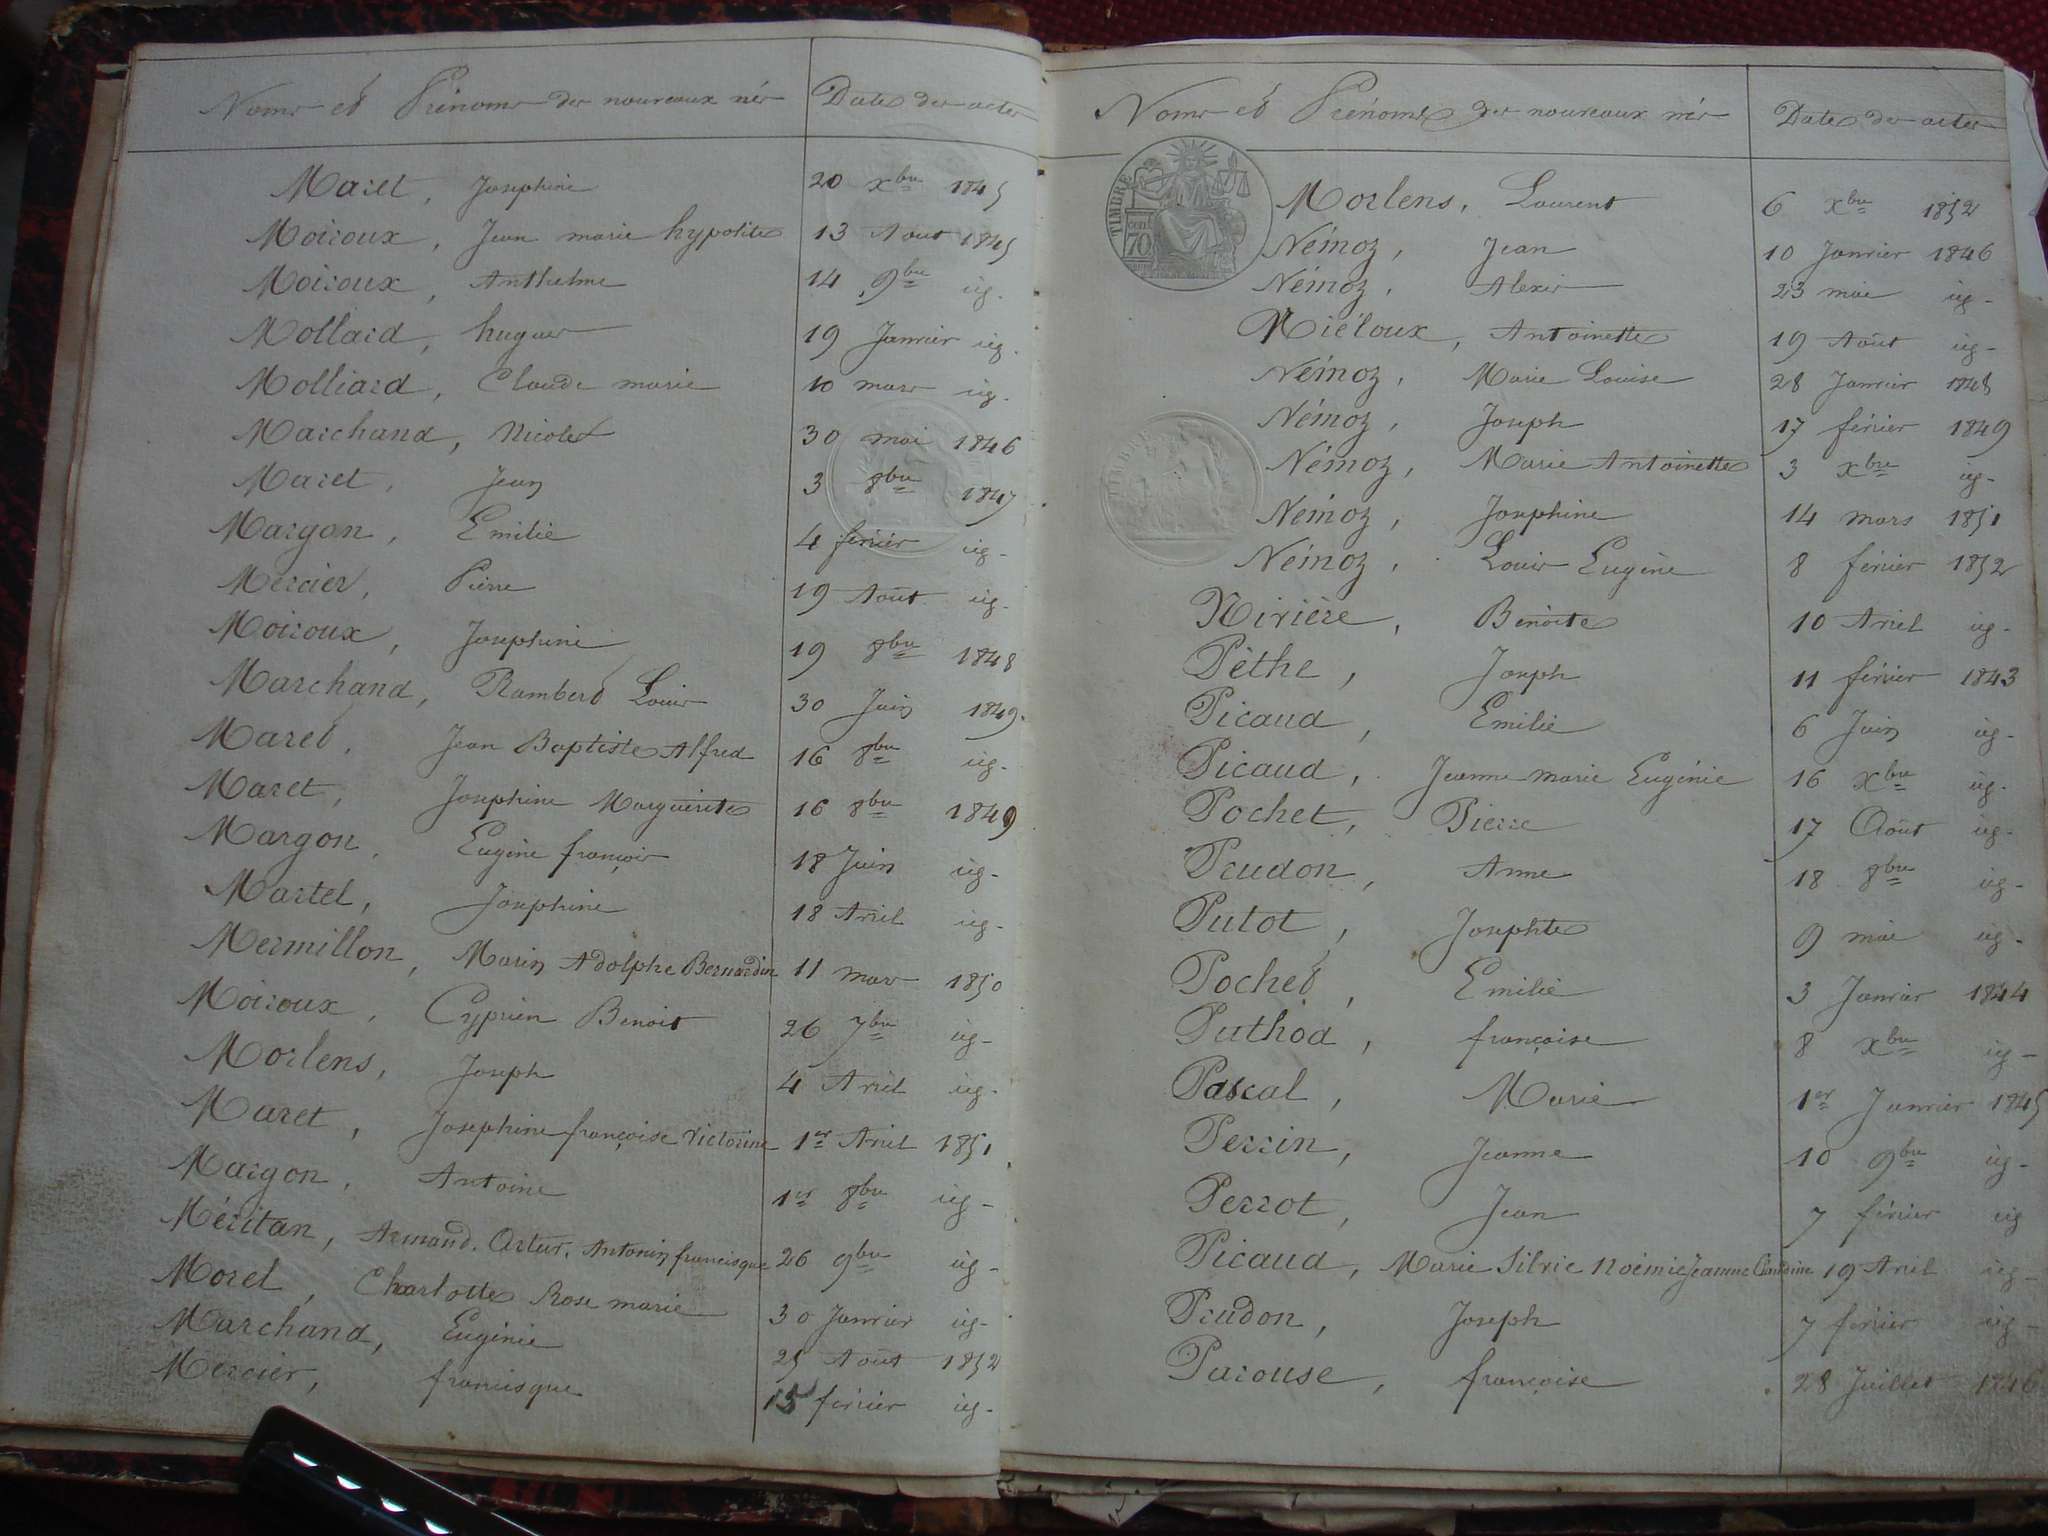 Noms et Prénoms des nouveaux nés Date des actes
Maret, Josephine 20 xbre 1845
Moiroux, Jean marie hypolite 13 Aout 1845
Moiroux, Anthelme 14 9bre id.
Mollard, hugues 19 Janvier id.
Molliard, Claude marie 10 mars id.
Marchand, Nicolet 30 mai 1846
Maret, Jean 3 8bre 1847
Margon, Emilie 4 février id.
Mercier, Pierre 19 Août id.
Moiroux, Josephine 19 8bre 1848
Marchand, Rambert Louis 30 Juin 1849.
Maret, Jean Baptiste Alfred 16 8bre id.
Maret, Josephine Marguerite 16 8bre 1849
Margon, Eugène françois 18 Juin id.
Martel, Josephine 18 Avril id.
Mermillon, Marin Adolphe Bernardin 11 mars 1850
Moiroux, Cyprien Benoit 26 7bre id.
Morlens, Joseph 4 Avril id.
Maret, Josephine françoise Victorine 1er Avril 1851
Margon, Antoine 1er 8bre id.
Méritan, Armand. Artur. Antonin francisque 26 9bre id.
Morel, Charlotte Rose marie 30 Janvier id.
Marchand, Eugénie 25 Août 1852
Mercier, francisque 15 février id.
Noms et Prénoms des nouveaux nés Date des actes
TIMBRE
70
Morlens, Laurent 6 xbre 1852
Némoz, Jean 10 Janvier 1846
Némoz, Alexis 23 mai id.
Niéloux, Antoinette 19 Août id.
Némoz, Marie Louise 28 Janvier 1848
Némoz, Joseph 17 février 1849
Némoz, Marie Antoinette 3 xbre id.
Némoz, Josephine 14 mars 1851
Némoz, Louis Eugène 8 février 1852
Nivière, Benoite 10 Avril id.
Pèthe, Joseph 11 février 1843
Picaud, Emilie 6 Juin id.
Picaud, Jeanne marie Eugénie 16 xbre id.
Pochet, Pierre 17 Août id.
Prudon, Anne 18 8bre id.
Putot, Josephte 9 mai id.
Pochet, Emilie 3 Janvier 1844
Puthod, françoise 8 xbre id.
Pascal, Marie 1er Janvier 1845
Perrin, Jeanne 10 9bre id.
Perrot, Jean 7 février id
Picaud, Marie Silvie Noémie Jeanne Claudine 19 Avril id.
Prudon, Joseph 7 février id.
Parouse, françoise 28 Juillet 1846